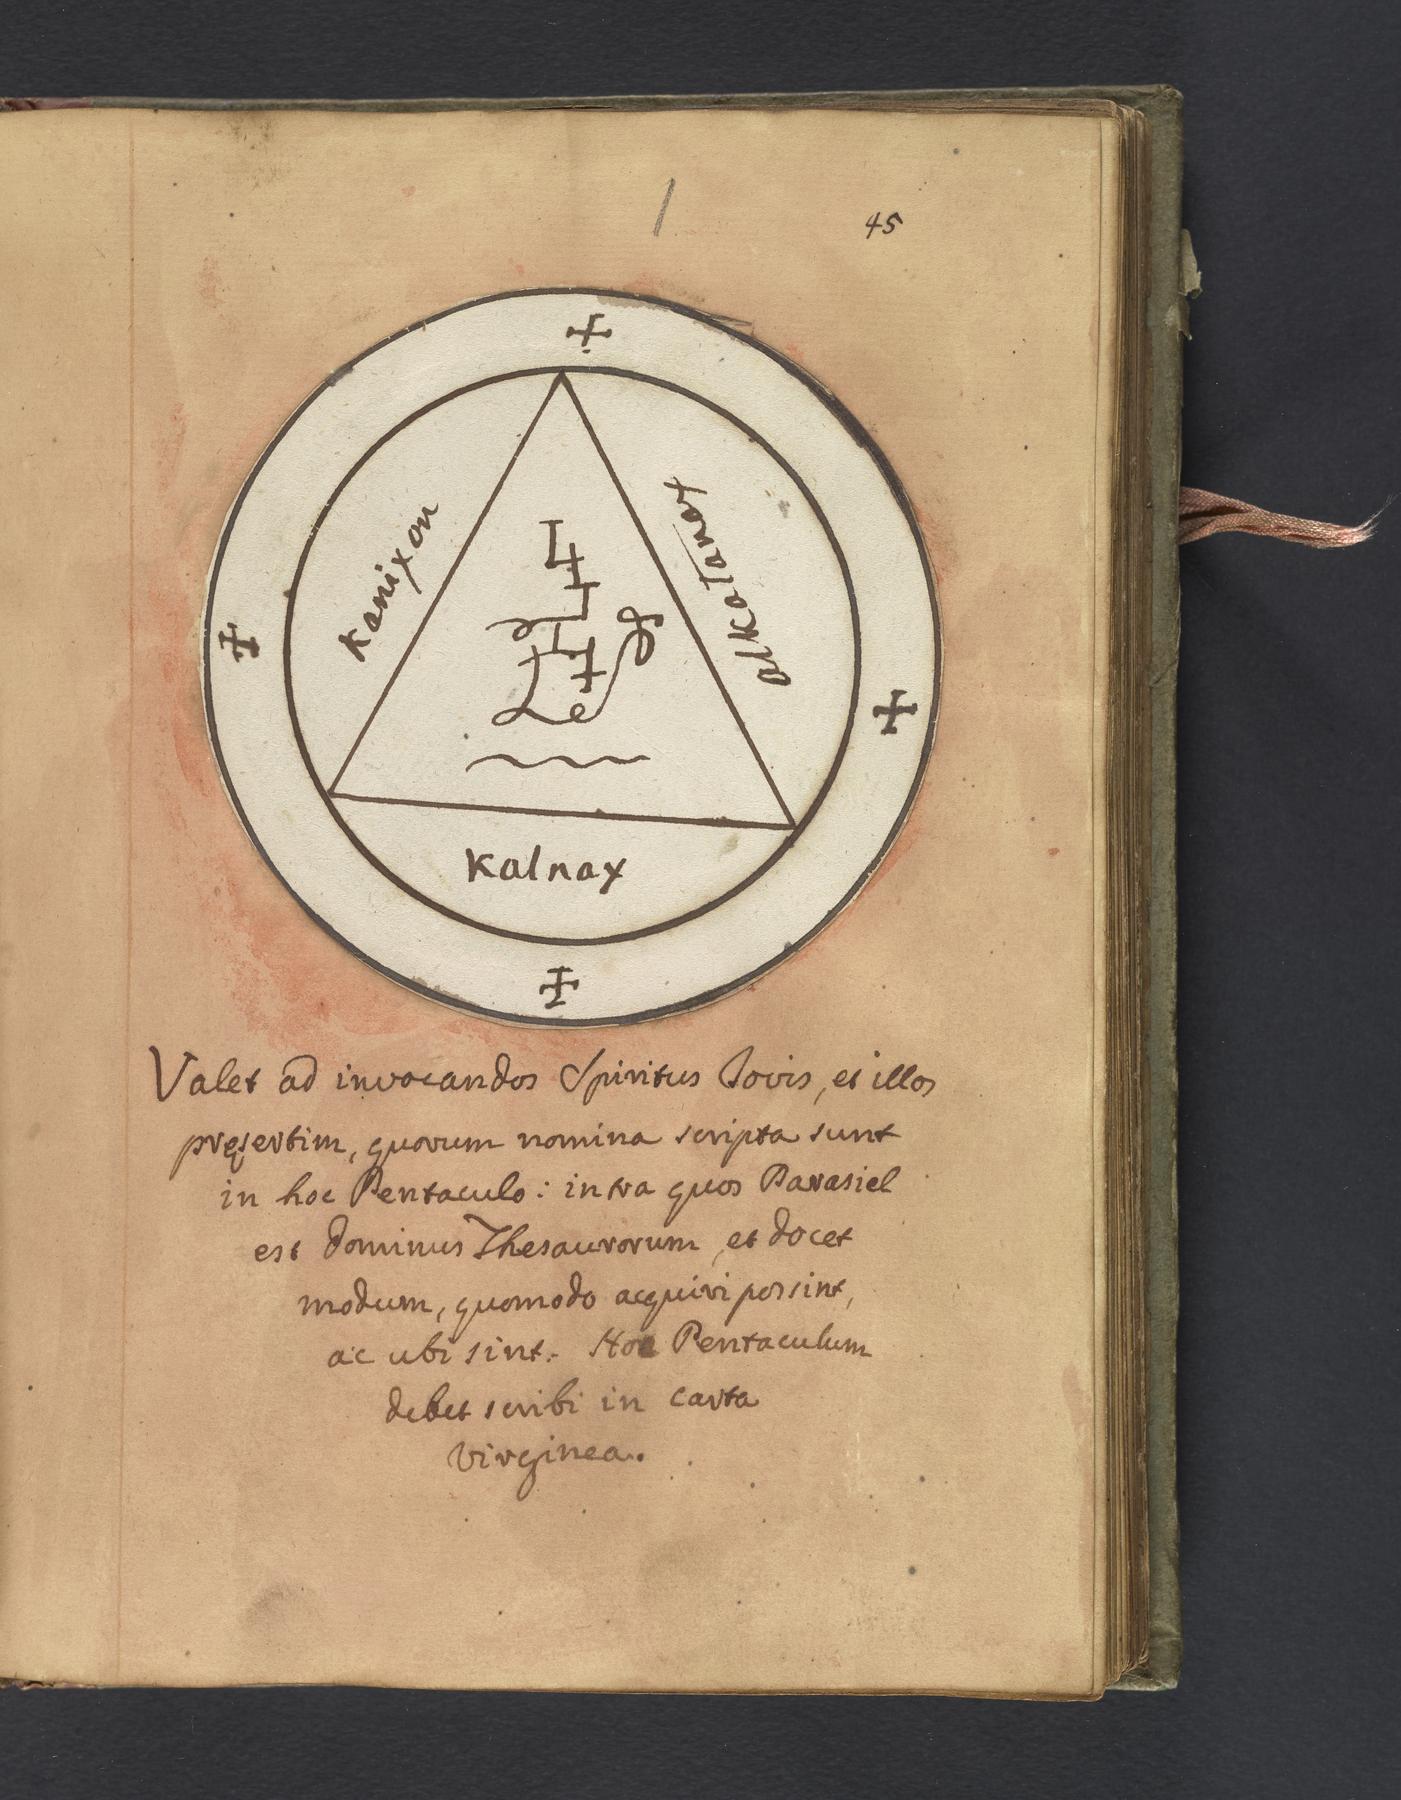 45
Kanixon
alKcatanax
Kalnax
Valet ad invocandos Spiritus Iovis, et illos
pręsertim, quorum nomina scripta sunt
in hoc Pentaculo: intra quos Parasiel
est dominus Thesaurorum, et docet
modum, quomodo acquiri possint,
ac ubi sint. Hoc Pentaculum
debet scribi in carta
virginea.